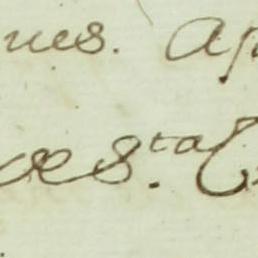 nes. Ap
de S.ta C